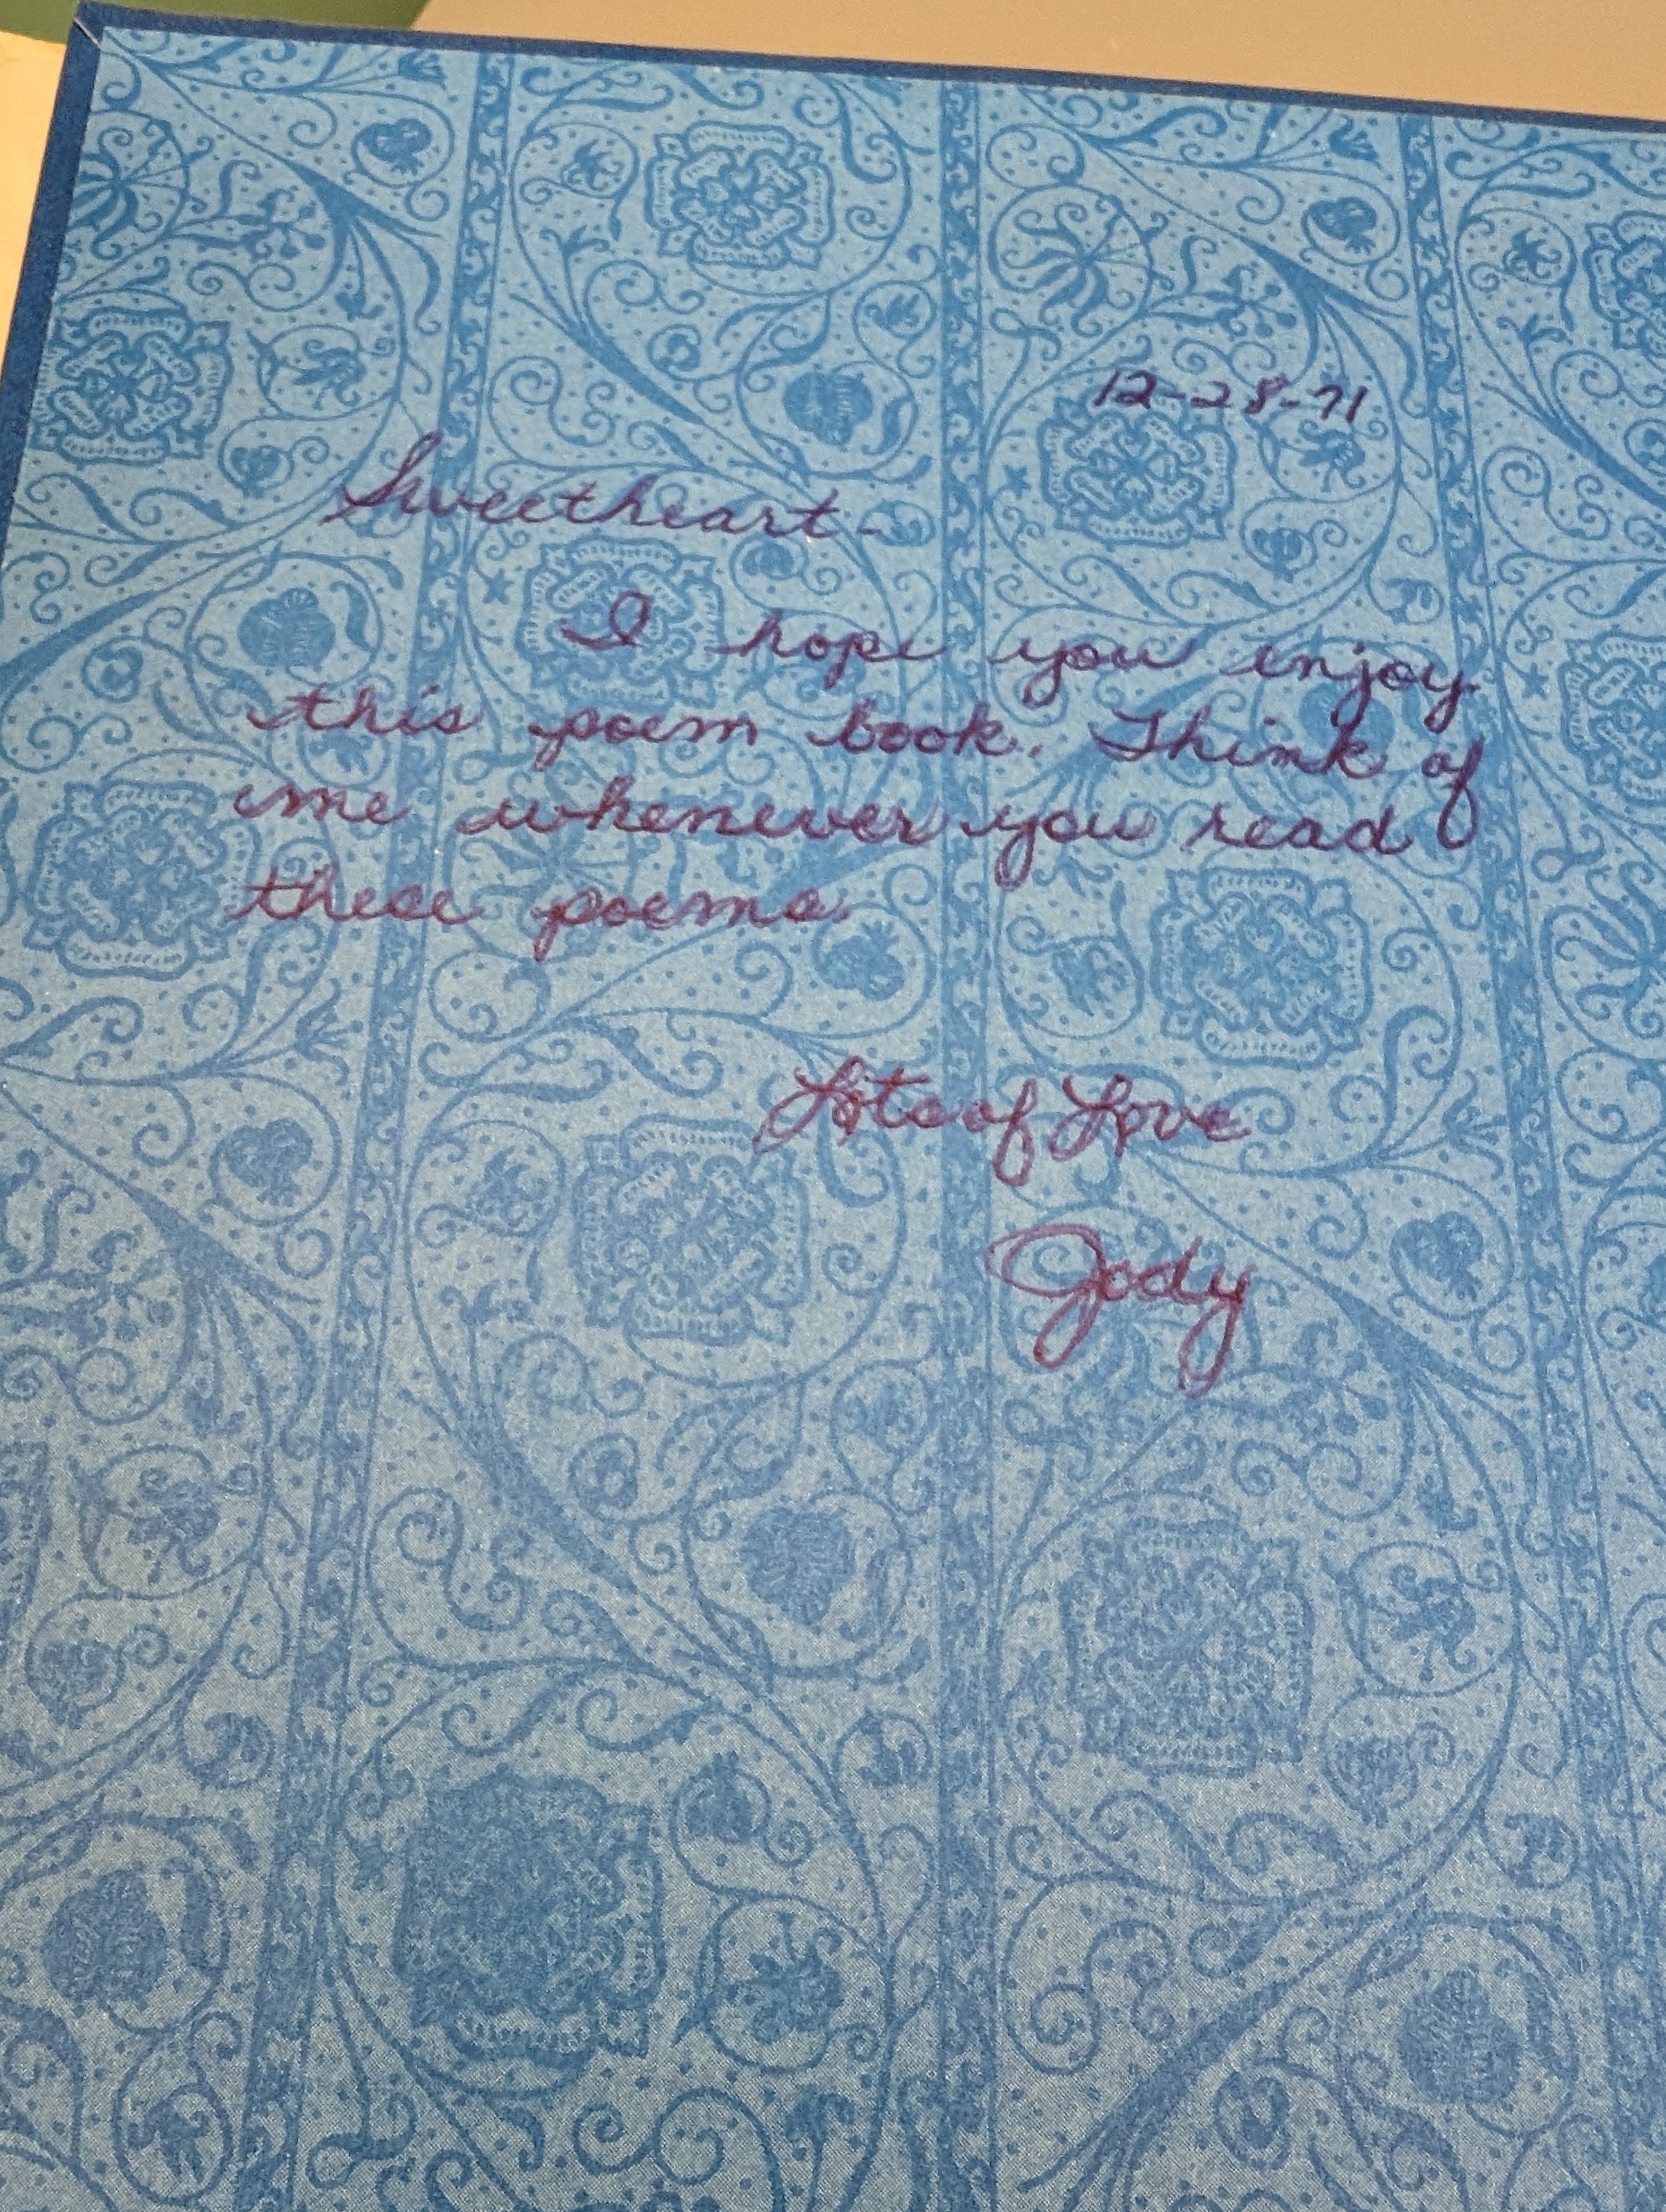 12-28-71
Sweetheart-
I hope you enjoy
this poem book. Think of
me whenever you read
these poems.
Lots of Love
Jody